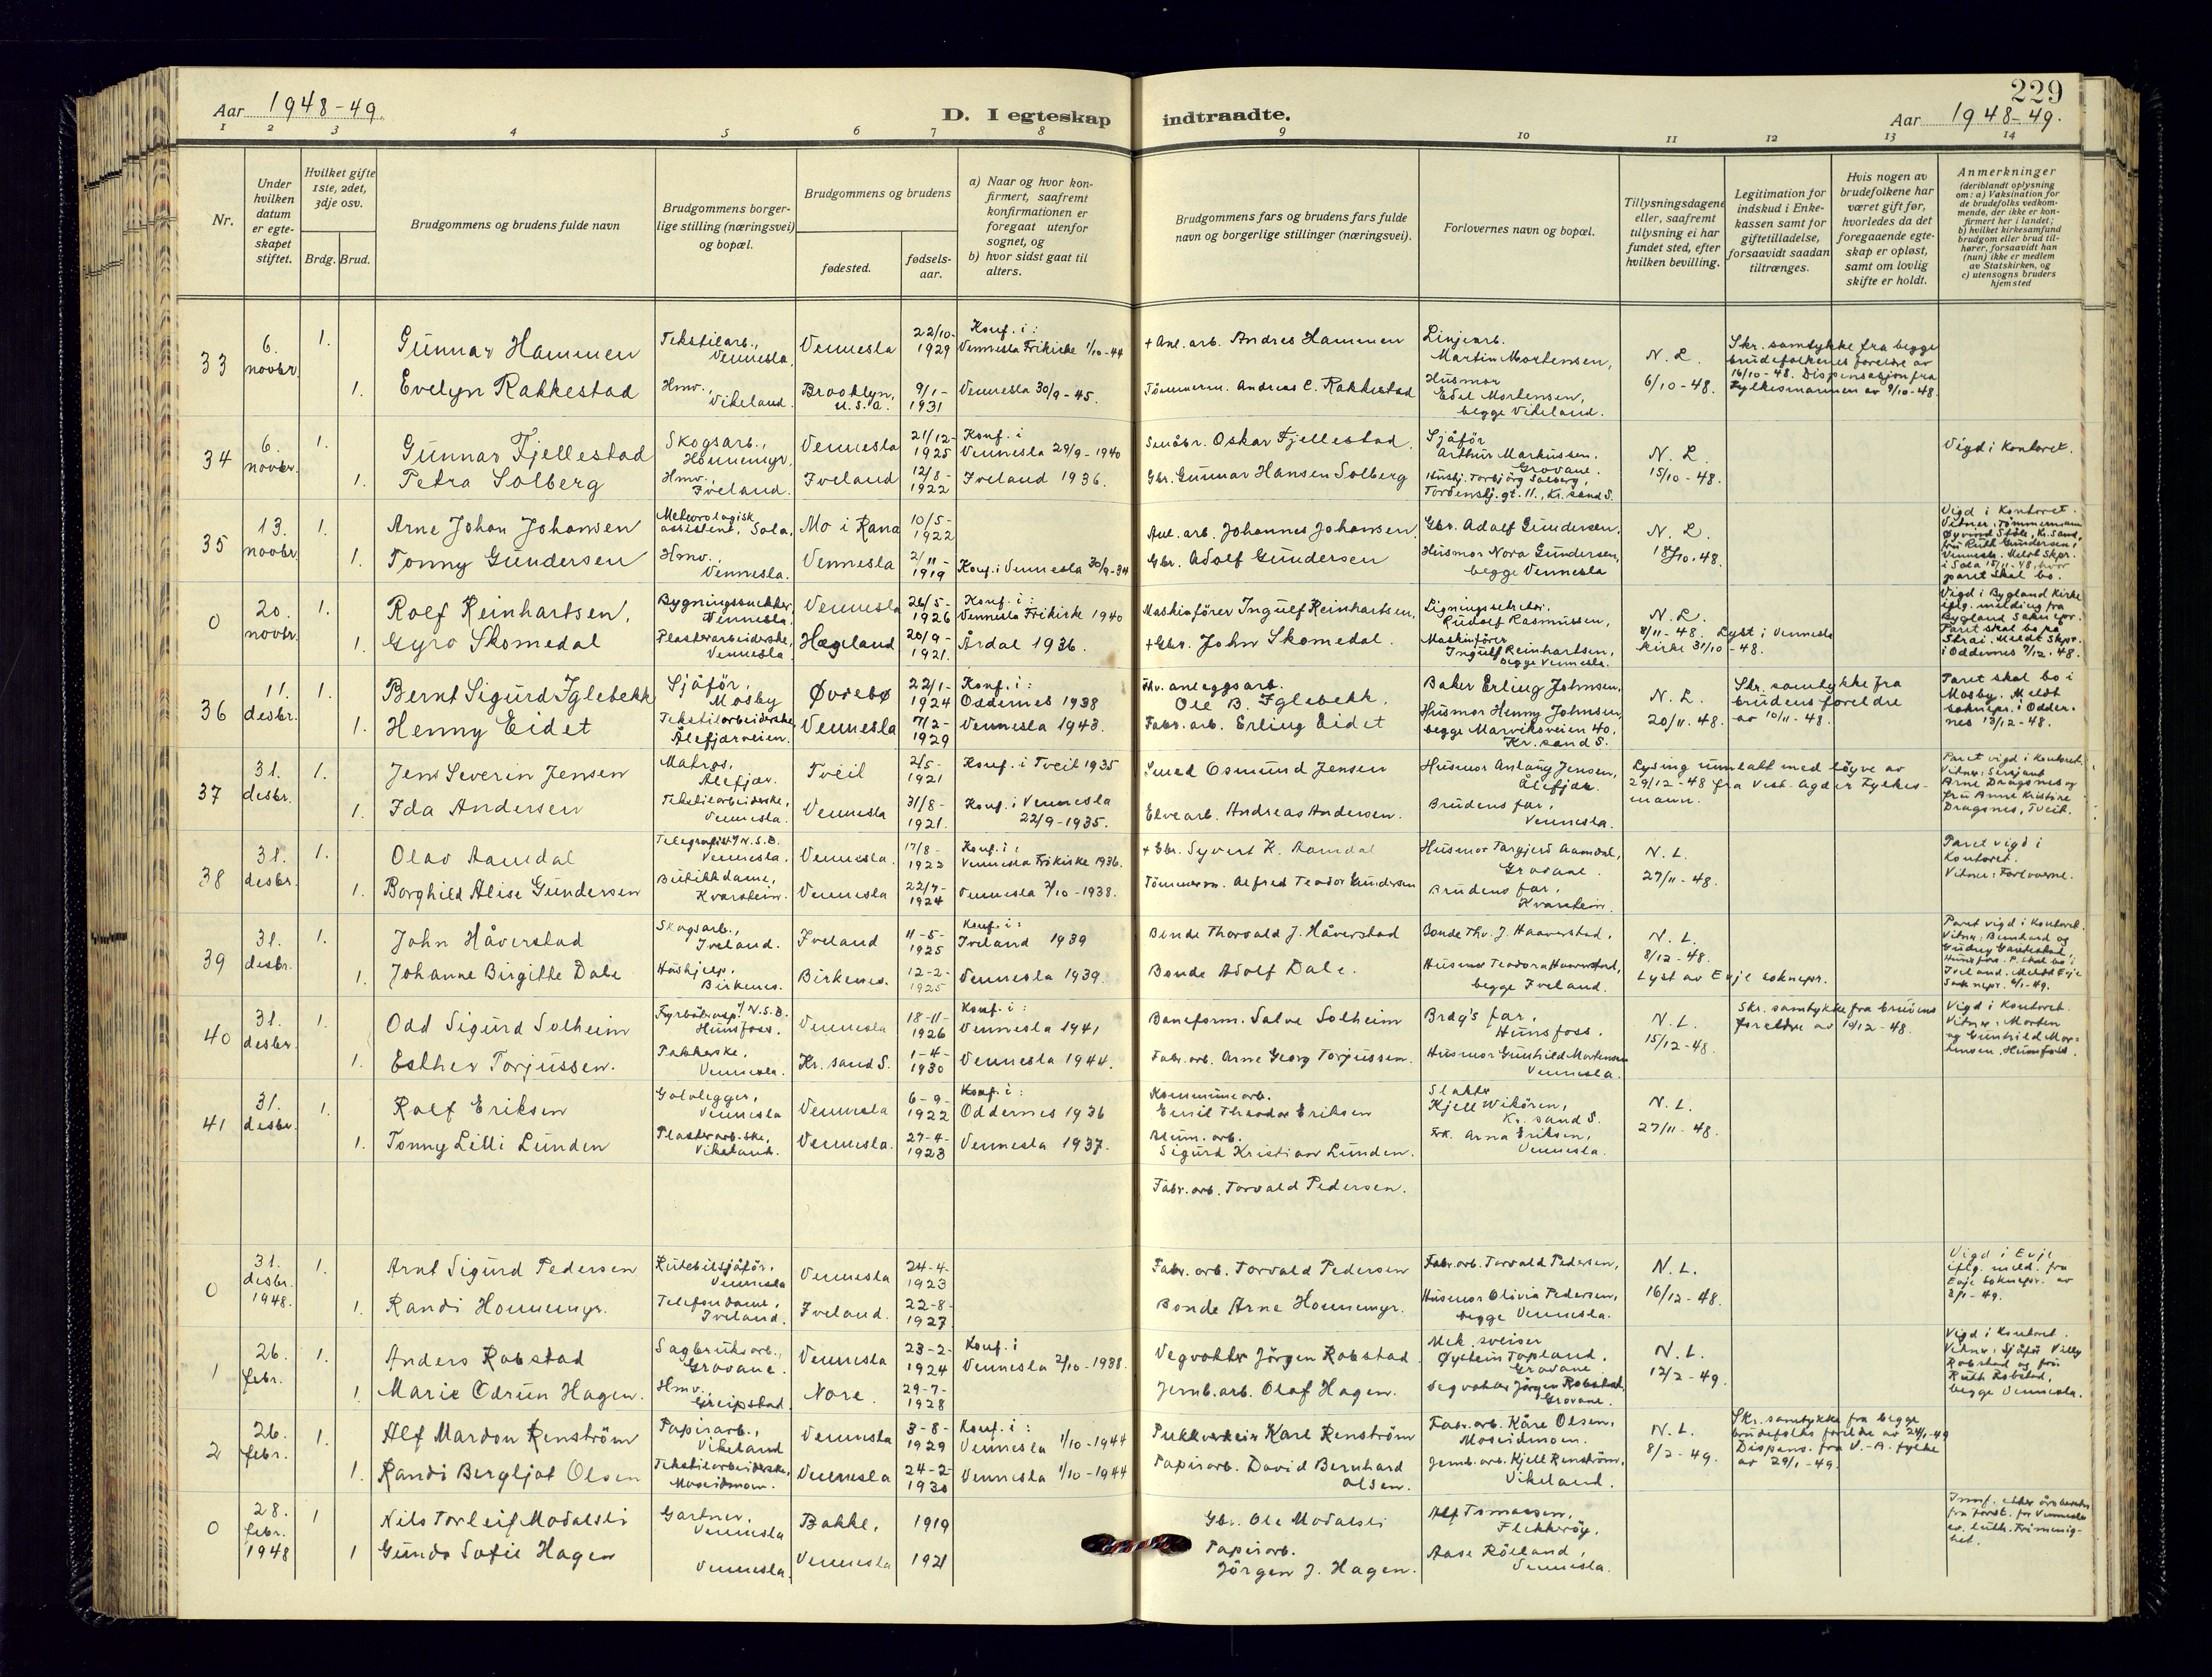 229
Aar 1948-49.
D. I egteskap indtraadte.
Aar 1948-49.
1 2 3 4 5 6 7 8 9 10 11 12 13 14
Nr.
Under hvilken datum er egte-skapet stiftet.
Hvilket gifte 1ste, 2det, 3dje osv.
Brdg. Brud.
Brudgommens og brudens fulde navn
Brudgommens borger-lige stilling (næringsvei) og bopæl.
Brudgommens og brudens
fødested.
fødsels-aar.
a) Naar og hvor kon-firmert, saafremt konfirmationen er foregaat utenfor sognet, og
b) hvor sidst gaat til alters.
Brudgommens fars og brudens fars fulde navn og borgerlige stillinger (næringsvei).
Forlovernes navn og bopæl.
Tillysningsdagene eller, saafremt tillysning ei har fundet sted, efter hvilken bevilling.
Legitimation for indskud i Enke-kassen samt for giftetilladelse, forsaavidt saadan tiltrænges.
Hvis nogen av brudefolkene har været gift før, hvorledes da det foregaaende egte-skap er opløst, samt om lovlig skifte er holdt.
Anmerkninger
(deriblandt oplysning om: a) Vaksination for de brudefolks vedkom-mende, der ikke er kon-firmert her i landet; b) hvilket kirkesamfund brudgom eller brud til-hører, forsaavidt han (hun) ikke er medlem av Statskirken, og c) utensogns bruders hjemsted
33 6. novbr. 1. Gunnar Hammen Tekstilarb., Vennesla. Vennesla 22/10-1929 Konf. i: Vennesla Frikirke 1/10-44 + Anl. arb. Andres Hammen Linjearb. Martin Mortensen, N. L. 6/10-48. Skr. samtykke fra begge brudefolkenes foreldre av 16/10-48. Dispensasjon fra Fylkesmannen av 9/10-48.
1. Evelyn Rakkestad Hmv., Vikeland. Brooklyn, U.S.A. 9/1-1931 Vennesla 30/9-45. Tömmerm. Andreas C. Rakkestad Husmor Edel Mortensen, begge Vikeland.
34 6. novbr. 1. Gunnar Fjellestad Skogsarb., Honnemyr. Vennesla 21/12-1925 Konf. i Vennesla 29/9-1940 Småbr. Oskar Fjellestad. Sjåför Arthur Markussen. Grovane. N. L. 15/10-48. Vigd i Kontoret.
1. Petra Solberg Hmv., Iveland. Iveland 12/8-1922 Iveland 1936. Gbr. Gunnar Hansen Solberg Hushj. Torbjörg Solberg, Tordenskj. gt. 11., Kr. sand S.
35 13. novbr. 1. Arne Johan Johansen Meteorologisk assistent, Sola. Mo i Rana 10/5-1922 Anl. arb. Johannes Johansen. Gbr. Adolf Gundersen, N. L. 18/10-48. Vigd i Kontoret. Vitner: Tömmermann Øyvind Ståle, Kr. Sand, fru Ruth Gundersen, Vennesla. Meldt Skpr. i Sola 15/11-48, hvor paret skal bo.
1. Tonny Gundersen Hmv., Vennesla. Vennesla 2/11-1919 Konf. i Vennesla 30/9-34 Gbr. Adolf Gundersen Husmor Nora Gundersen, begge Vennesla
0 20. novbr. 1. Rolf Reinhartsen, Bygningssnekker, Vennesla. Vennesla 26/5-1926 Konf. i: Vennesla Frikirke 1940 Maskinförer Ingulf Reinhartsen, Ligningssekretær. Rudolf Rasmussen, N. L. 8/11-48. Lyst i Vennesla kirke 31/10-48. Vigd i Bygland Kirke iflg. melding fra Bygland Soknepr. Paret skal bo på Strai. Meldt Skpr. i Oddernes 7/12-48.
1. Gyro Skomedal Plasterarbeiderske, Vennesla Hægeland 20/9-1921. Årdal 1936. + Gbr. John Skomedal. Maskinförer Ingulf Reinhartsen, begge Vennesla.
36 11. desbr. 1. Bernt Sigurd Iglebekk Sjåför, Mosby Øvrebø 22/1-1924 Konf. i: Oddernes 1938 Fhv. anleggsarb. Ole B. Iglebekk. Baker Erling Johnsen, N. L. 20/11-48. Skr. samtykke fra brudens foreldre av 10/11-48. Paret skal bo i Mosby. Meldt soknepr. i Odder-nes 13/12-48.
1. Henny Eidet Tekstilarbeiderske, Ålefjærveien. Vennesla 7/2-1929 Vennesla 1943. Fabr. arb. Erling Eidet Husmor Henny Johnsen begge Marviksveien 40, Kr. sand S.
37 31. desbr. 1. Jens Severin Jensen Matros, Ålefjær. Tveit 2/5-1921 Konf. i Tveit 1935 Smed Osmund Jensen Husmor Aslaug Jensen, Ålefjær. Lysing unnlatt med löyve av 29/12-48 fra Vest-Agder Fylkes-mann. Paret vigd i Kontoret. Vitner: Sersjant Arne Dragsnes og fru Anne Kristine Dragsnes, Tveit.
1. Ida Andersen Tekstilarbeiderske, Vennesla. Vennesla 31/8-1921. Konf. i Vennesla 22/9-1935. Elvearb. Andreas Andersen. Brudens far, Vennesla.
38 31. desbr. 1. Olav Aamdal Telegrafist v/ N.S.B. Vennesla. Vennesla. 17/8-1922 Konf. i: Vennesla Frikirke 1936. + Gbr. Syvert K. Aamdal Husmor Targjerd Aamdal, Grovane. N. L. 27/11-48. Paret vigd i Kontoret. Vitner: Forloverne.
1. Borghild Alise Gundersen Butikkdame, Kvarstein. Vennesla 22/7-1924 Vennesla 2/10-1938. Tömmerm. Alfred Teodor Gundersen Brudens far, Kvarstein.
39 31. desbr. 1. John Håverstad Skogsarb., Iveland. Iveland 11-5-1925 Konf. i: Iveland 1939 Bonde Thorvald J. Håverstad Bonde Thv. J. Haaverstad, N. L. 8/12-48. Lyst av Evje soknepr. Paret vigd i Kontoret. Vitner: Bernhard og Gudny Gautestad, Hunsfoss. P. skal bo i Iveland. Meldt Evje Soknepr. 4/1-49.
1. Johanne Birgitte Dale Hushjelp, Birkenes. Birkenes. 12-2-1925 Vennesla 1939. Bonde Adolf Dale. Husmor Teodora Haaverstad, begge Iveland.
40 31. desbr. 1. Odd Sigurd Solheim Fyrböterasp. v/ N.S.B. Hunsfoss. Vennesla 18-11-1926 Konf. i: Vennesla 1941 Baneform. Salve Solheim Brdg's far, Hunsfoss. N. L. 15/12-48. Skr. samtykke fra brudens foreldre av 10/12-48. Vigd i Kontoret. Vitner: Morten og Gunhild Mor-tensen, Hunsfoss.
1. Esther Torjussen. Pakkerske, Vennesla. Kr. sand S. 1-4-1930 Vennesla 1944. Fabr. arb. Arne Georg Torjussen. Husmor Gunhild Mortensen Vennesla.
41 31. desbr. 1. Rolf Eriksen Golvlegger, Vennesla Vennesla 6-9-1922 Konf. i: Oddernes 1936 Kommunearb. Emil Theodor Eriksen Slakter Kjell Wikören, Kr. sand S. N. L. 27/11-48.
1. Tonny Lilli Lunden Plasterarb.ske, Vikeland. Vennesla. 27-4-1923 Vennesla 1937. Alum. arb. Sigurd Kristian Lunden. Frk. Arna Eriksen, Vennesla.
Fabr. arb. Torvald Pedersen.
0 31. desbr. 1948. 1. Arnt Sigurd Pedersen Rutebilsjåför, Vennesla Vennesla 24-4-1923 Fabr. arb. Torvald Pedersen Fabr. arb. Torvald Pedersen, N. L. 16/12-48. Vigd i Evje iflg. meld. fra Evje soknepr. av 3/1-49.
1. Randi Honnemyr. Telefondame, Iveland. Iveland. 22-8-1927 Bonde Arne Honnemyr. Husmor Olivia Pedersen, begge Vennesla.
1 26. febr. 1. Anders Robstad Sagbruksarb., Grovane. Vennesla 23-2-1924 Konf. i Vennesla 2/10-1938. Vegvokter Jörgen Robstad Mek. sveiser Øystein Topland, Grovane N. L. 12/2-49. Vigd i Kontoret. Vitner: Sjåför Villy Robstad og fru Ruth Robstad, begge Vennesla.
1. Marie Odrun Hagen. Hmv., Greipstad Nore. 29-7-1928 Jernb. arb. Olaf Hagen. Vegvokter Jörgen Robstad, Grovane.
2 26. febr. 1. Alf Mardon Renström Papirarb., Vikeland Vennesla 3-8-1929 Konf. i: Vennesla 1/10-1944 Pukkverkeier Karl Renström Fabr. arb. Kåre Olsen, Moseidmoen. N. L. 8/2-49. Skr. samtykke fra begge brudefolks foreldre av 24/1-49 Dispens. fra V.-A. fylke av 29/1-49.
1. Randi Bergljot Olsen Tekstilarbeiderske, Moseidmoen. Vennesla 24-2-1930 Vennesla 1/10-1944 Papirarb. David Bernhard Olsen. Jernb. arb. Kjell Renström, Vikeland.
0 28. febr. 1948 1 Nils Torleif Modalsli Gartner, Vennesla Bakke. 1919 Gbr. Ole Modalsli Alf Tomassen, Flekkeröy. Innf. etter årsberetn. fra forst. for Vennesla ev. luth. Frimenig-het.
1 Gundo Sofie Hagen Vennesla. Vennesla 1921 Papirarb. Jörgen J. Hagen. Aase Röiland, Vennesla.